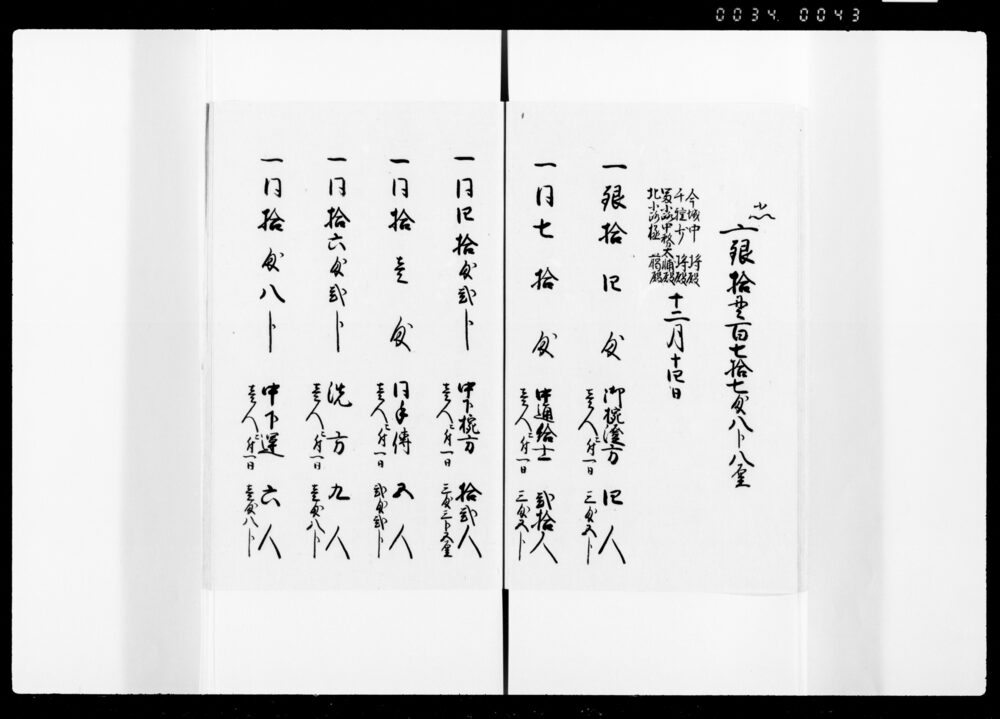 0034 0043
小以
一銀拾貫百七拾七匁八分八厘
十二月十四日
今城中将殿
千種少将殿
冨小路中務大輔殿
北小路極﨟殿
一銀拾四匁 御椀塗方 四人
壱人ニ付一日 三匁五分
一同七拾匁 中通給士 弐拾人
壱人ニ付一日 三匁五分
一同四拾匁弐分 中下椀方 拾弐人
壱人ニ付一日 三匁三分五厘
一同拾壱匁 同手傳 五人
壱人ニ付一日 弐匁弐分
一同拾六匁弐分 洗方 九人
壱人ニ付一日 壱匁八分
一同拾匁八分 中下運 六人
壱人ニ付一日 壱匁八分